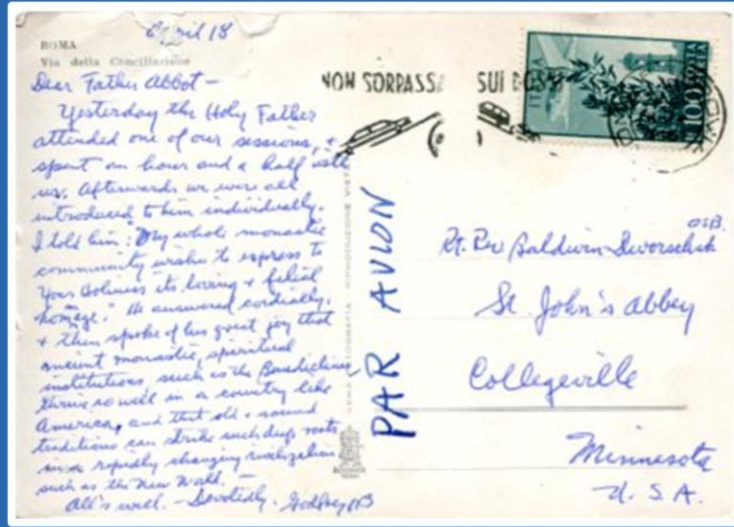 April 18
ROMA
Via della Conciliazione
Dear Father Abbot -
Yesterday the Holy Father
attended one of our sessions, +
spent an hour and a half with
us. Afterwards we were all
introduced to him individually.
I told him: "My whole monastic
community wishes to express to
Your Holiness its loving + filial
homage." He answered cordially,
+ then spoke of his great joy that
ancient monastic, spiritual
institutions, such as the Benedictines
thrive so well in a country like
America, and that old + sound
traditions can strike such deep roots
in a rapidly changing civilization
such as the New World. -
All's well. - Devotedly. Godfrey OSB
NON SORPASSA SUI DOSSI
ITALIA
L. 100 POSTA
PAR AVION
Rt. Rev Baldwin Dworschak OSB.
St. John's Abbey
Collegeville
Minnesota
U. S. A.